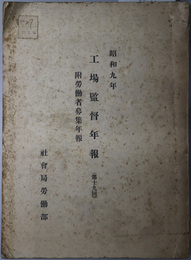 昭和九年
工場監督年報
(第十九回)
附勞働者募集年報
社會局勞働部